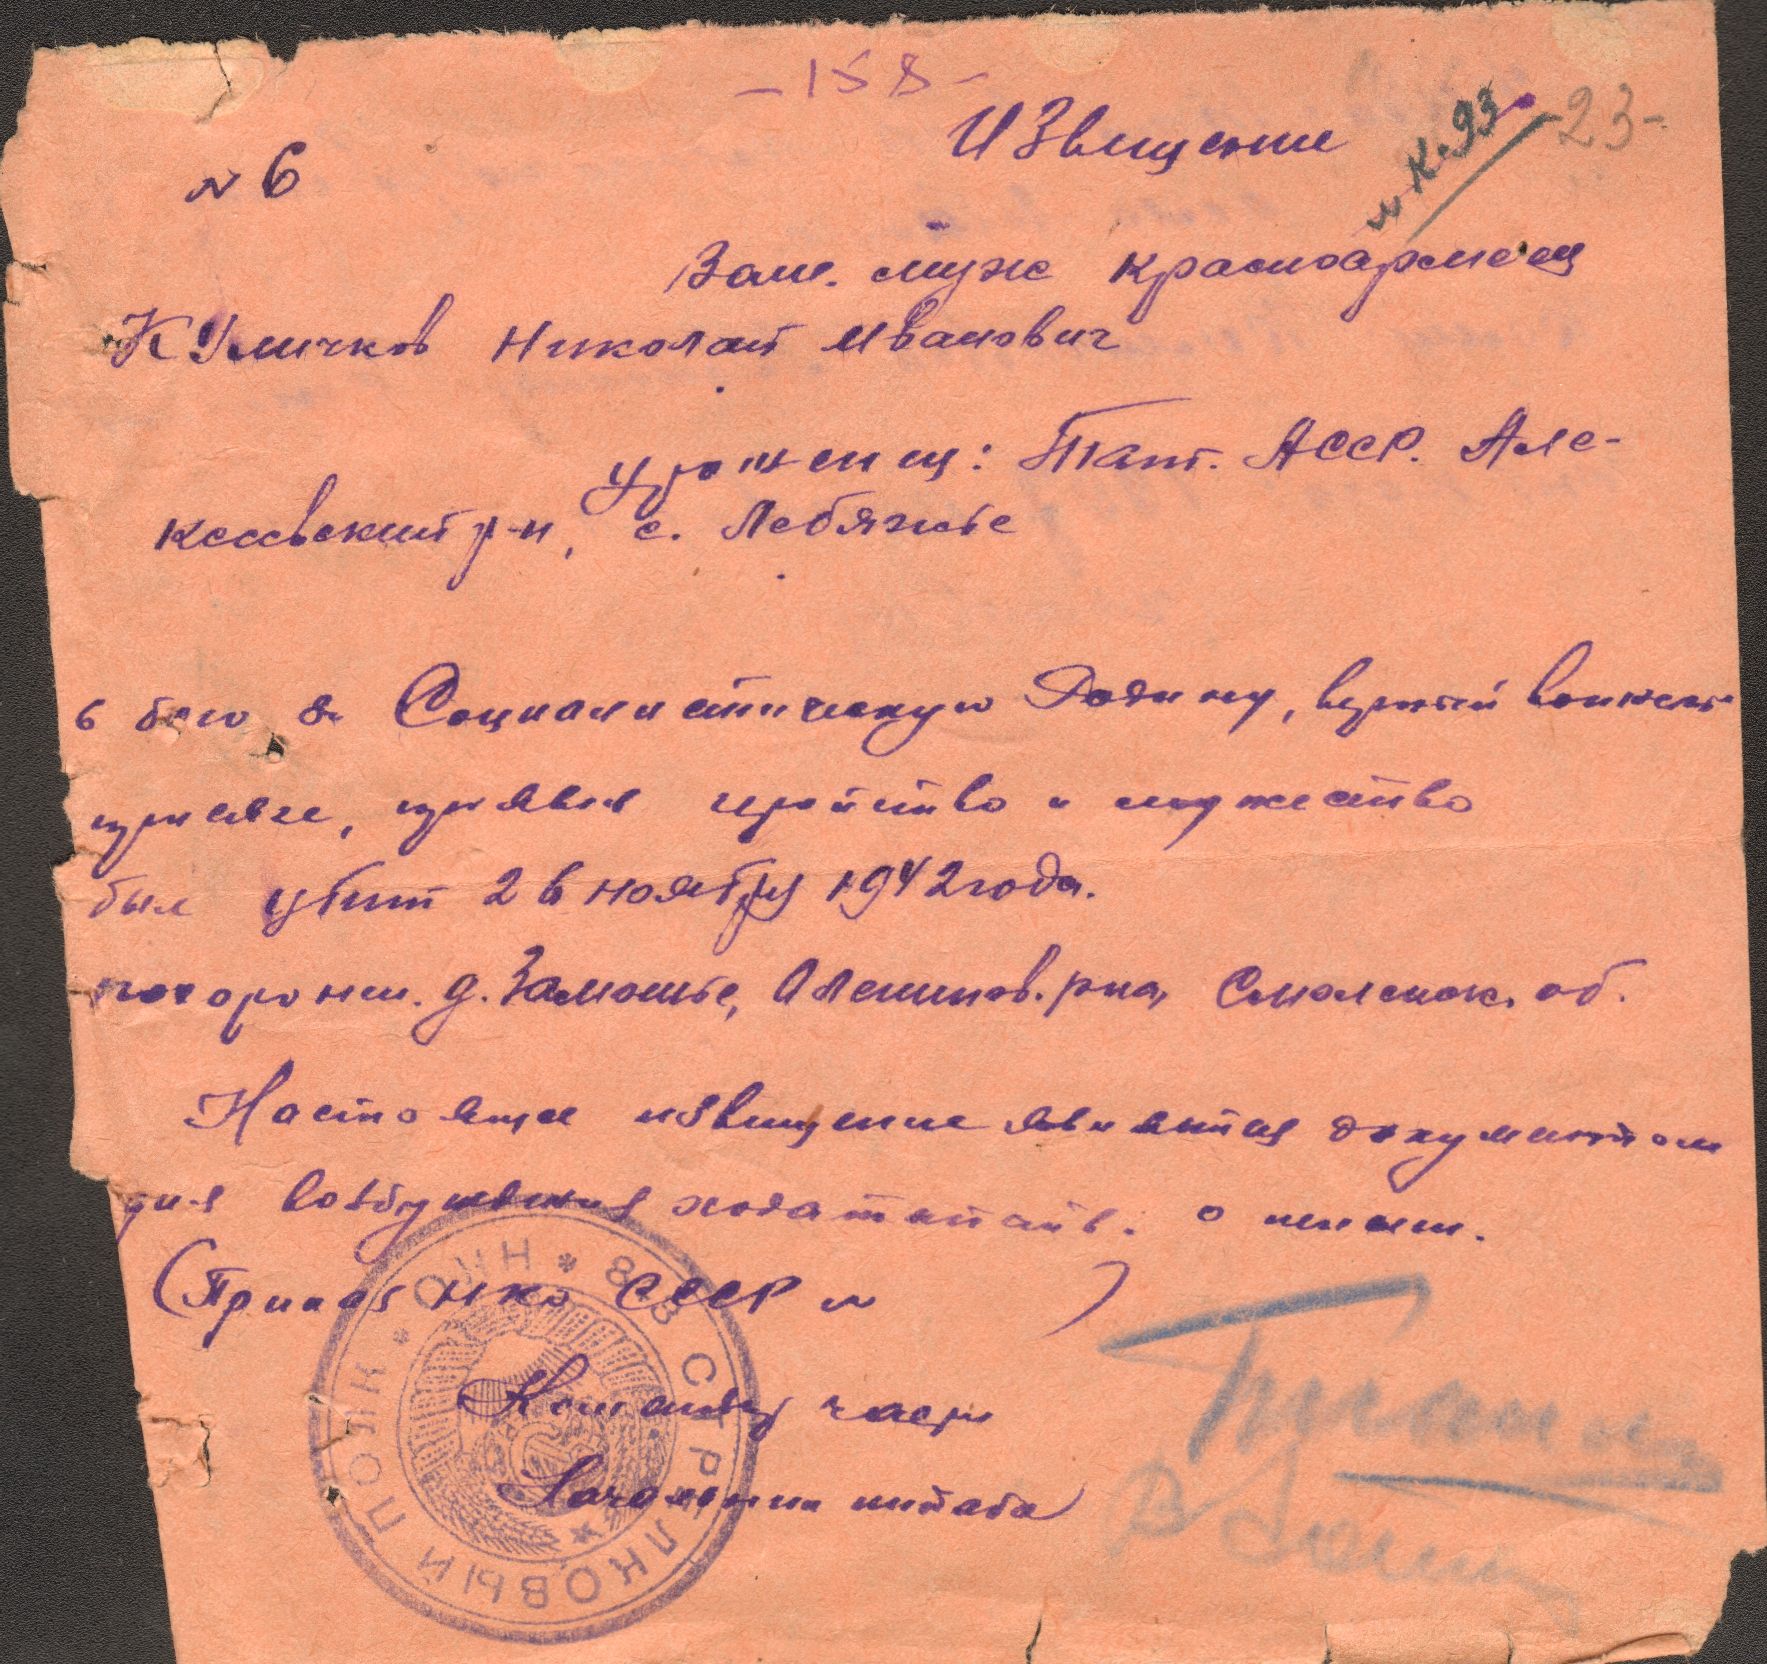 -158-
Извещение
-23-
№ 6
и К.93
Ваш. муж красноармеец
Куличков Николай Иванович
уроженец: Тат. АССР. Але-
ксеевский р-н, с. Лебяжье
в бою за Социалистическую Родину, верный воинской
присяге, проявив геройство и мужество
был убит 26 ноября 1942 года.
похоронен. д. Замошье, Оленинов. р-на, Смоленск. об.
Настоящее извещение является документом
для возбуждения ходатайств. о пенсии.
(Приказ НКО СССР № )
Командир части
Начальник штаба
НКО * 88 СТРЕЛКОВЫЙ ПОЛК *